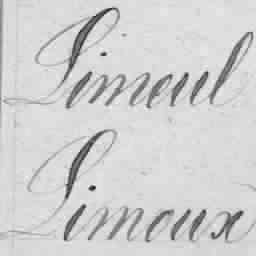 Limeul
Limoux